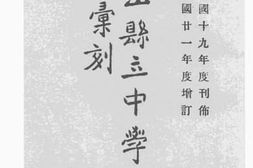 國十九年度刊佈
國廿一年度增訂
縣立中學
彙刻